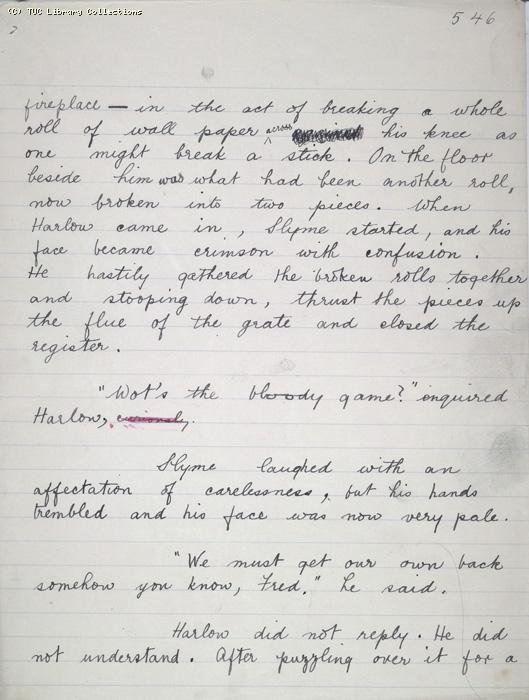 (C) TUC Library Collections
546
fireplace — in the act of breaking a whole
roll of wall paper across his knee as
one might break a stick. On the floor
beside him was what had been another roll,
now broken into two pieces. When
Harlow came in, Slyme started, and his
face became crimson with confusion.
He hastily gathered the broken rolls together
and stooping down, thrust the pieces up
the flue of the grate and closed the
register.
"Wot's the bloody game?" enquired
Harlow, curiously.
Slyme laughed with an
affectation of carelessness, but his hands
trembled and his face was now very pale.
"We must get our own back
somehow you know, Fred." he said.
Harlow did not reply. He did
not understand. After puzzling over it for a